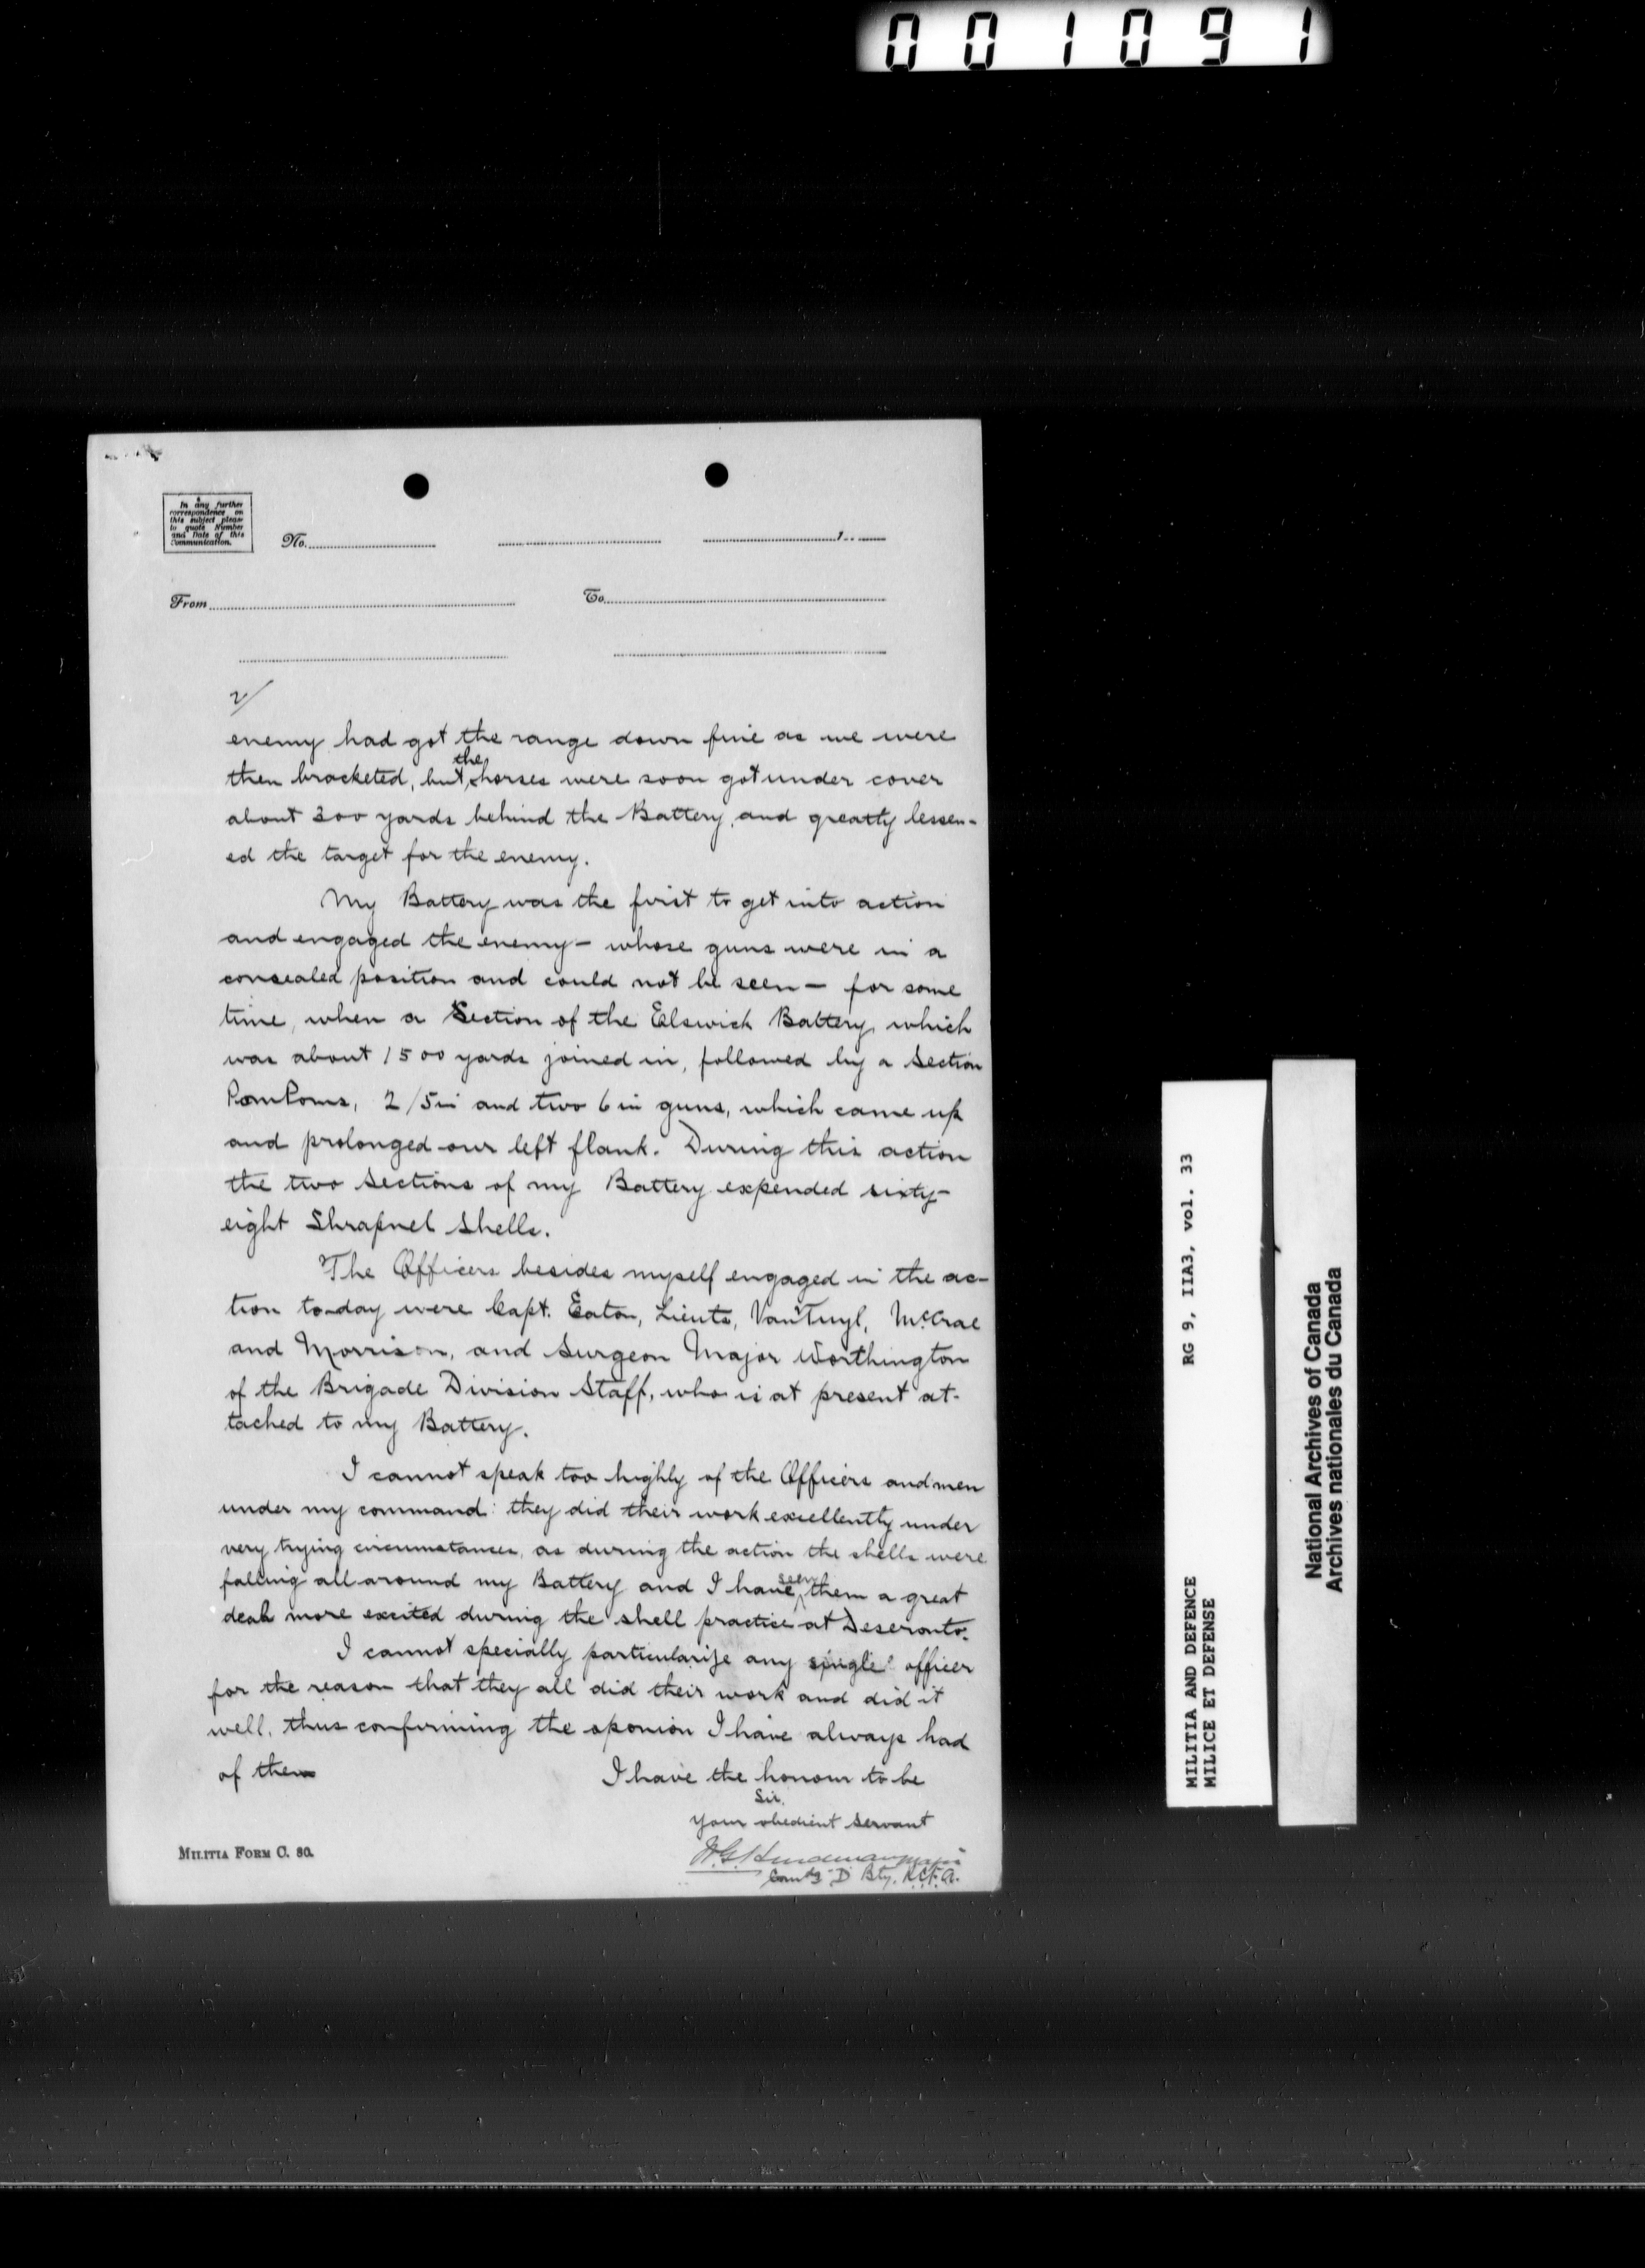 001091
In any further
correspondence on
this subject please
to quote Number
and Date of this
Communication.
No.
1
From
To
2/
enemy had got the range down fine as we were
then bracketed, but the horses were soon got under cover
about 300 yards behind the Battery, and greatly lessen-
ed the target for the enemy.
My Battery was the first to get into action
and engaged the enemy - whose guns were in a
concealed position and could not be seen - for some
time, when a Section of the Elswick Battery, which
was about 1500 yards joined in, followed by a Section
PomPoms, 2/5in and two 6in guns, which came up
and prolonged our left flank. During this action
the two Sections of my Battery expended sixty-
eight Shrapnel shells.
The Officers besides myself engaged in the ac-
tion today were Capt. Eaton, Lieuts, VanTuyl, McCrae
and Morrison, and Surgeon Major Worthington
of the Brigade Division Staff, who is at present at-
tached to my Battery.
I cannot speak too highly of the Officers and men
under my command: they did their work excellently under
very trying circumstances, as during the action the shells were
falling all around my Battery and I have seen them a great
deal more excited during the shell practice at Deseronto.
I cannot specially particularize any single officer
for the reason that they all did their work and did it
well, thus confirming the oponion I have always had
of them
I have the honour to be
Sir,
Your obedient Servant
W.G. Hurdman Major
Comdg "D" Bty. R.C.F.A.
MILITIA FORM C. 80.
MILITIA AND DEFENCE RG 9, IIA3, vol. 33
MILICE ET DEFENSE
National Archives of Canada
Archives nationales du Canada